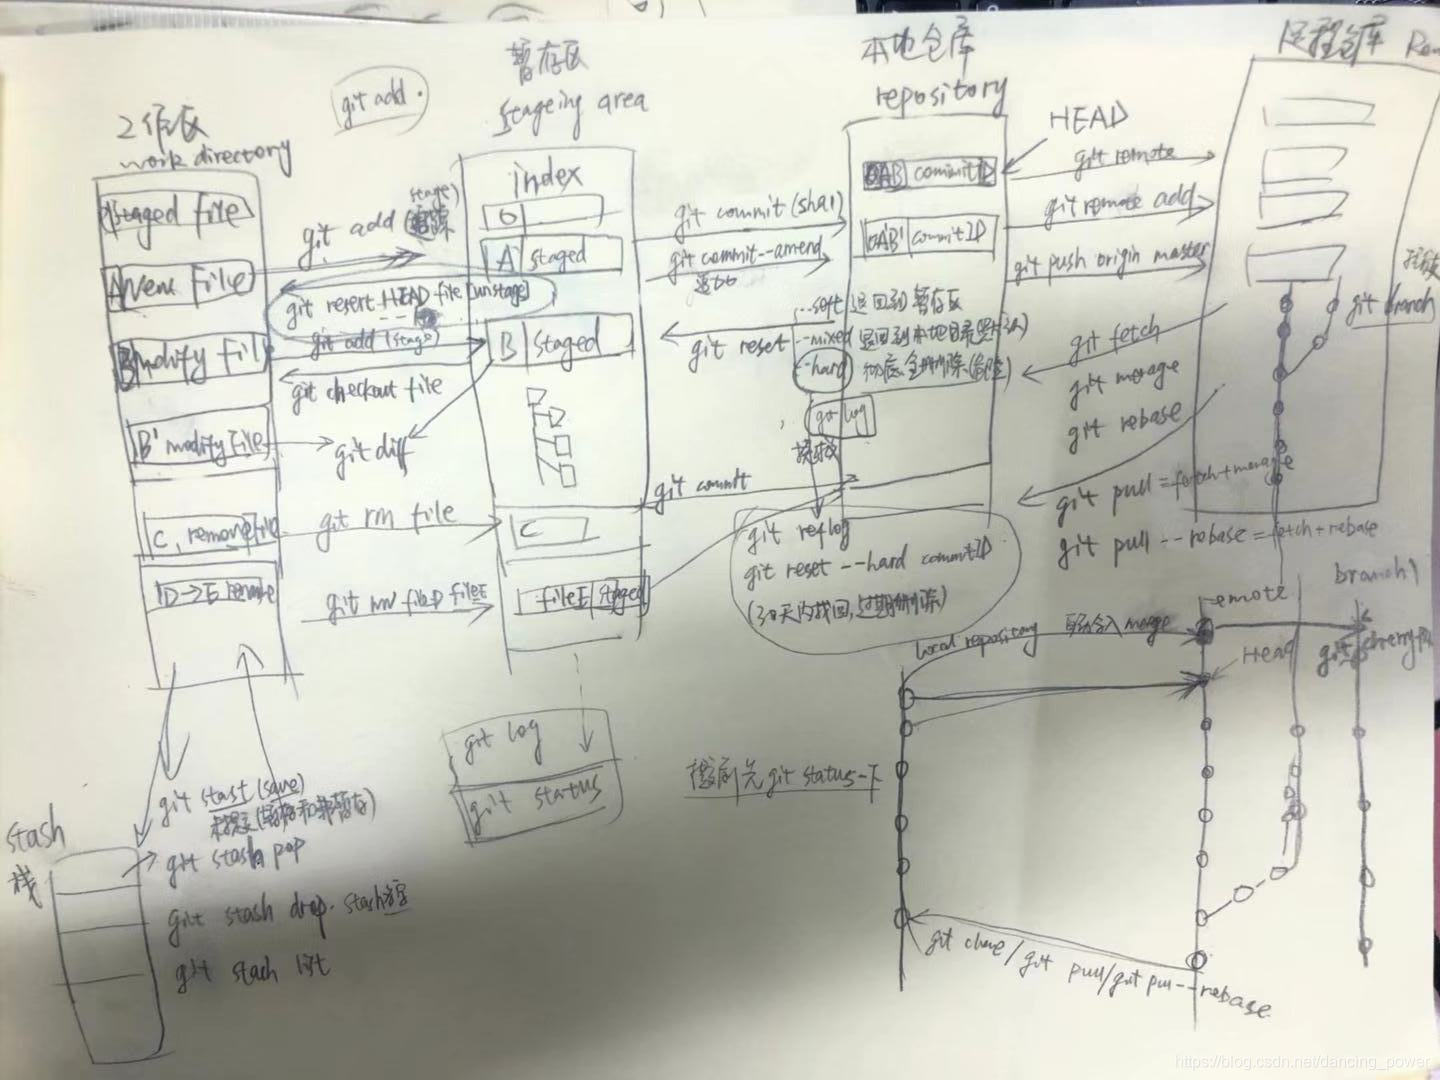 git add .
工作区
work directory
Staged file
A new file
B modify fil
B' modify File
C, remove file
D→E rename
git add (stage)
git resert HEAD file [unstage]
git add (stage)
git checkout file
git diff
git rm file
git mv fileD fileE
暂存区
stageing area
index
A staged
B staged
C
fileE staged
git commit (sha1)
git commit --amend
git reset
--soft 退回到暂存区
--mixed 退回到本地目录
--hard 彻底全删除
git log
git commit
git reflog
git reset --hard commitID
(30天内找回,过期删除)
本地仓库
repository
HEAD
0AB commitID
0AB' commitID
git remote
git remote add
git push origin master
git fetch
git merage
git rebase
git pull = fertch+merage
git pull --robase = fetch+rebase
远程仓库
git branch
git log
git status
git stast (save)
git stash pop
git stash drop
git stach list
stash
栈
先git status一下
local repository
merge
remote
Head
branch1
git cherry-pi
git clone/git pull/git pull --rebase
https://blog.csdn.net/dancing_power